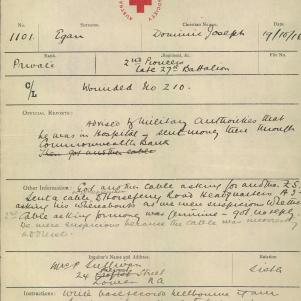 SOCIETY AUSTR
No. Surname. Christian Names. Date.
1101. Egan Dominic Joseph 19/10/16
Rank. Regiment, &c.
Private 2nd Pioneers
late 27th Battalion
C/L Wounded No 210.
OFFICIAL REPORTS:
Advised by Military Authorities that
he was in Hospital & sent money then through
Commonwealth Bank
Then got another cable
Other Information: Got another cable asking for another £5.
Sent a cable to Horseferry Road Headquarters A.I.F
asking his whereabouts as we were suspicious whether
2nd Cable asking for money was genuine - got no reply.
We were suspicious because the cable was
address.
Enquirer's Name and Address. Relation
Sullivan
24 Street
S.A. Sister
Instructions: Write base records Melbourne